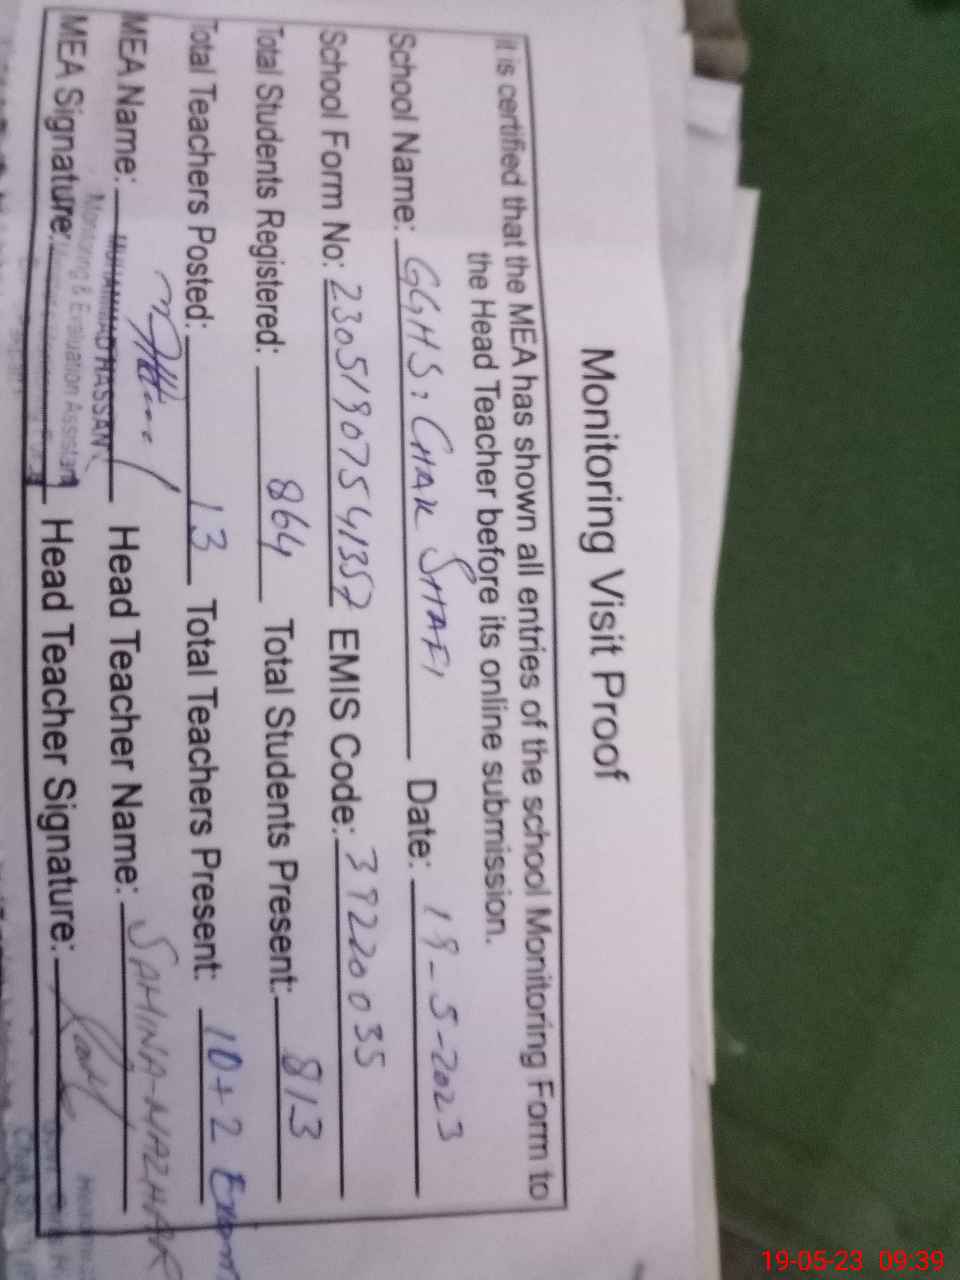 Monitoring Visit Proof
It is certified that the MEA has shown all entries of the school Monitoring Form to
the Head Teacher before its online submission.
School Name: GGHS: CHAK SHAFI Date: 19-5-2023
School Form No: 23051907541357 EMIS Code: 39220035
Total Students Registered: 864 Total Students Present: 813
Total Teachers Posted: 13 Total Teachers Present: 10+2 Exam
MEA Name: MUHAMMAD HASSAN Head Teacher Name: SAMINA-NAZHAR
Monitoring & Evaluation Assistant
MEA Signature: Head Teacher Signature:
19-05-23 09:39